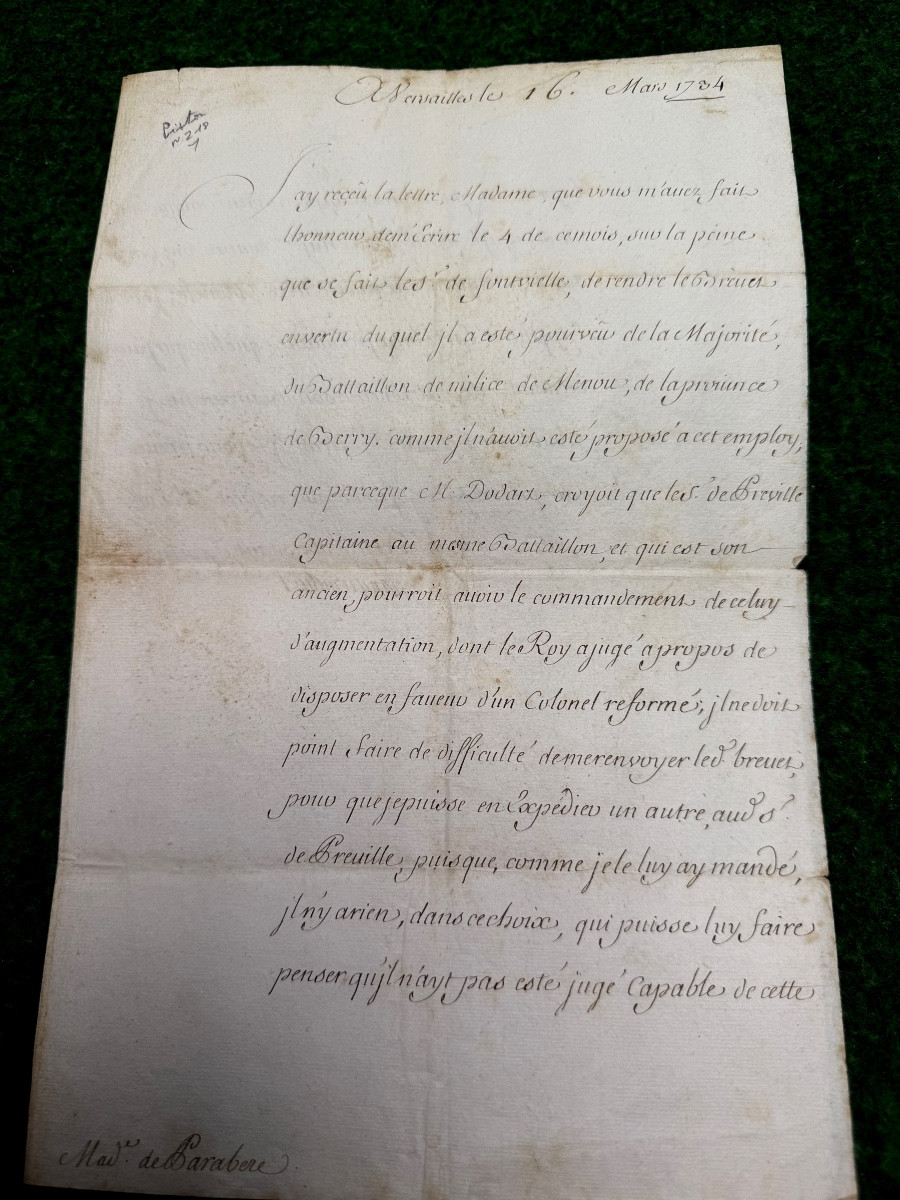 A Versailles le 16. Mars 1734
J'ay reçeu la lettre, Madame, que vous m'avez fait
lhonneur dem'Ecrire le 4 de cemois, sur la peine
que se fait le Sr. de fontvielle, de rendre le Brevet
envertu du quel jl a esté pourveu de la Majorité,
du Battaillon de milice de Menou, de la province
de Berry. comme jl n'avoit esté proposé a cet employ,
que parceque Mr. Dodart, croyoit que le Sr. de Preville
Capitaine au mesme Battaillon, et qui est son
ancien, pourroit avoir le commandement de celuy
d'augmentation, dont le Roy a jugé apropos de
disposer en faveur d'un Colonel reformé; jl ne doit
point faire de difficulté de me renvoyer led. brevet,
pour que je puisse en Expédier un autre, aud. Sr.
de Preville, puisque, comme je le luy ay mandé,
jl n'y a rien, dans ce choix, qui puisse luy faire
penser qu'jl n'ayt pas esté jugé Capable de cette
Made. de Parabere